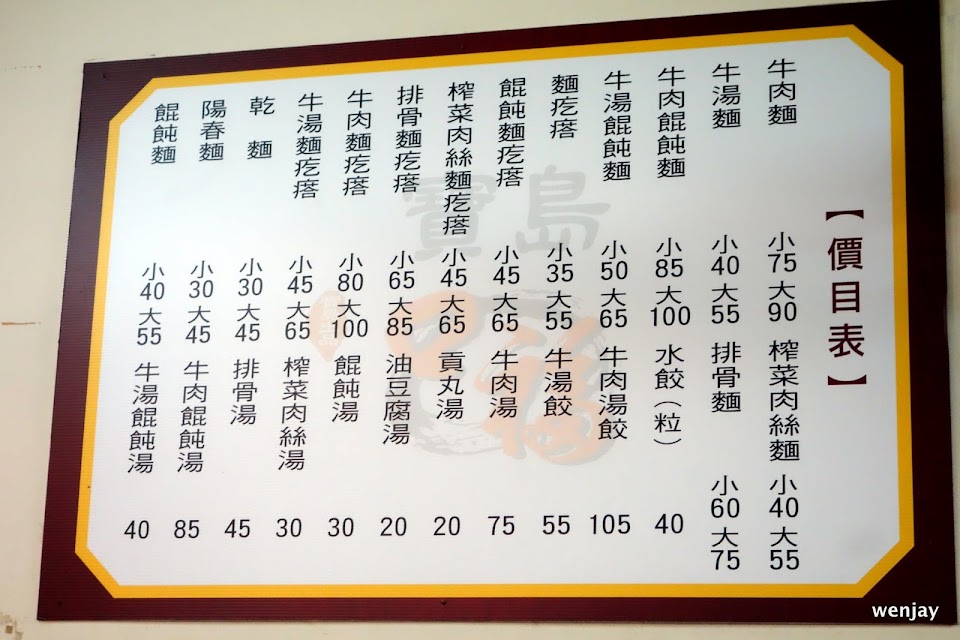 【價目表】
牛肉麵 小75 大90
牛湯麵 小40 大55
牛肉餛飩麵 小85 大100
牛湯餛飩麵 小50 大65
麵疙瘩 小35 大55
餛飩麵疙瘩 小45 大65
榨菜肉絲麵疙瘩 小45 大65
排骨麵疙瘩 小65 大85
牛肉麵疙瘩 小80 大100
牛湯麵疙瘩 小45 大65
乾麵 小30 大45
陽春麵 小30 大45
餛飩麵 小40 大55
榨菜肉絲麵 小40 大55
排骨麵 小60 大75
水餃(粒) 40
牛肉湯餃 105
牛湯餃 55
牛肉湯 75
貢丸湯 20
油豆腐湯 20
餛飩湯 30
榨菜肉絲湯 30
排骨湯 45
牛肉餛飩湯 85
牛湯餛飩湯 40
寶島
wenjay